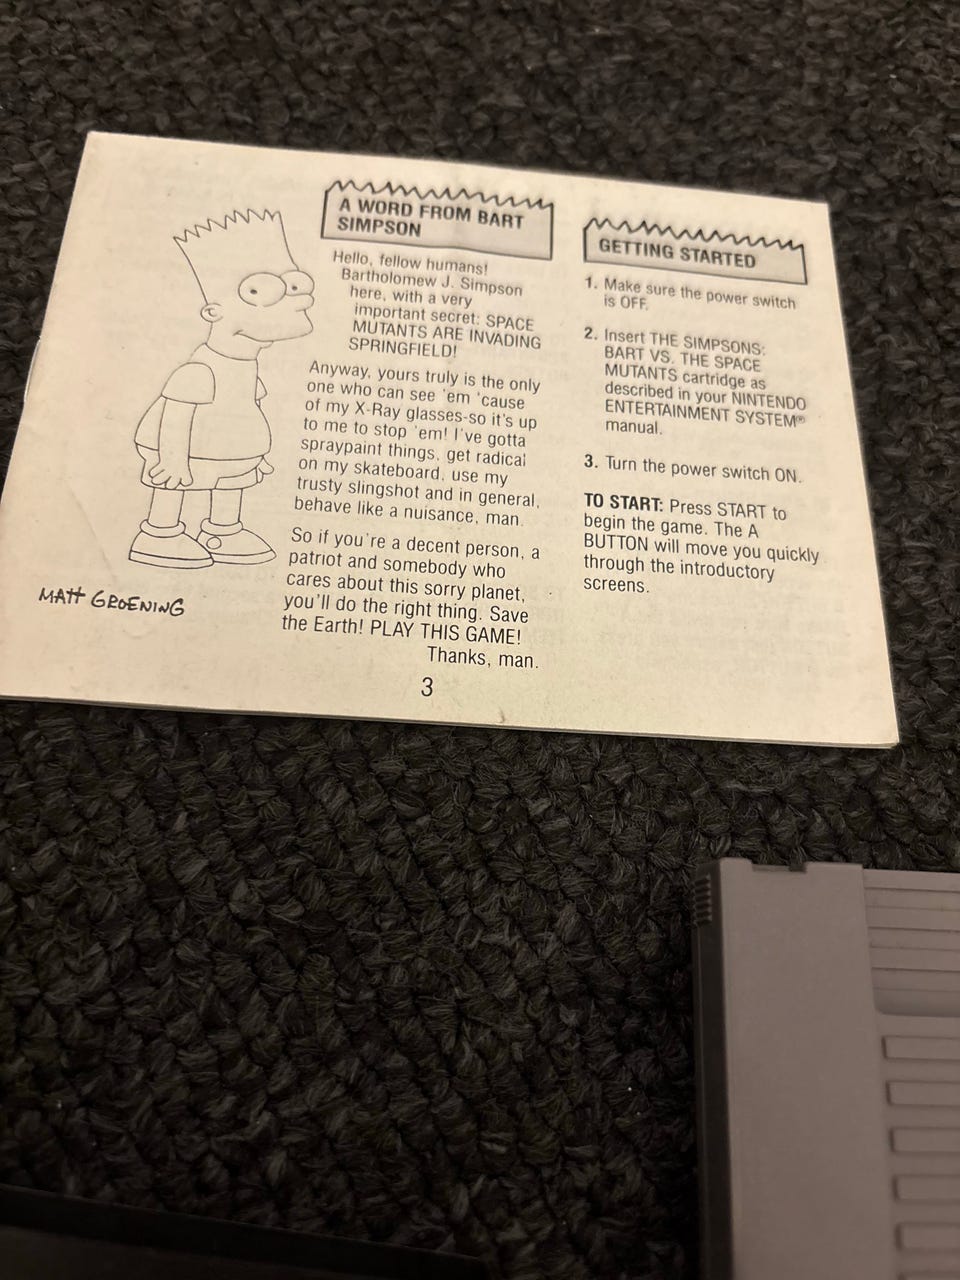 A WORD FROM BART
SIMPSON
Hello, fellow humans!
Bartholomew J. Simpson
here, with a very
important secret: SPACE
MUTANTS ARE INVADING
SPRINGFIELD!
Anyway, yours truly is the only
one who can see 'em 'cause
of my X-Ray glasses-so it's up
to me to stop 'em! I've gotta
spraypaint things, get radical
on my skateboard, use my
trusty slingshot and in general,
behave like a nuisance, man.
So if you're a decent person, a
patriot and somebody who
cares about this sorry planet,
you'll do the right thing. Save
the Earth! PLAY THIS GAME!
Thanks, man.
MATT GROENING
GETTING STARTED
1. Make sure the power switch
is OFF.
2. Insert THE SIMPSONS:
BART VS. THE SPACE
MUTANTS cartridge as
described in your NINTENDO
ENTERTAINMENT SYSTEM®
manual.
3. Turn the power switch ON.
TO START: Press START to
begin the game. The A
BUTTON will move you quickly
through the introductory
screens.
3